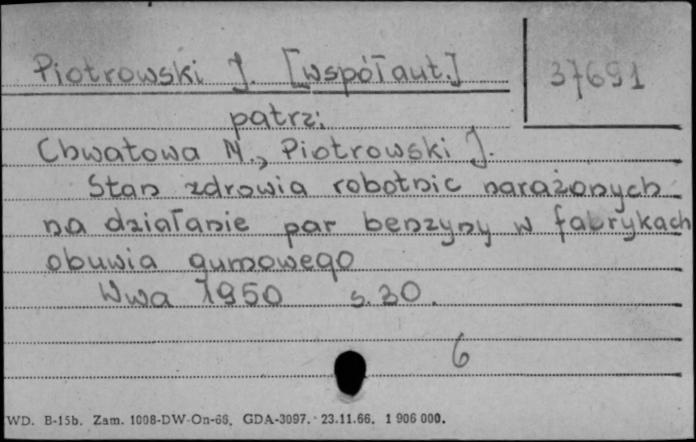 Piotrowski J. [współaut.]
37691
patrz:
Chwatowa M., Piotrowski J.
Stan zdrowia robotnic narażonych
na działanie par benzyny w fabrykach
obuwia gumowego
Wwa 1950 s. 30.
6
WD. B-15b. Zam. 1008-DW-On-66. GDA-3097. 23.11.66. 1 906 000.